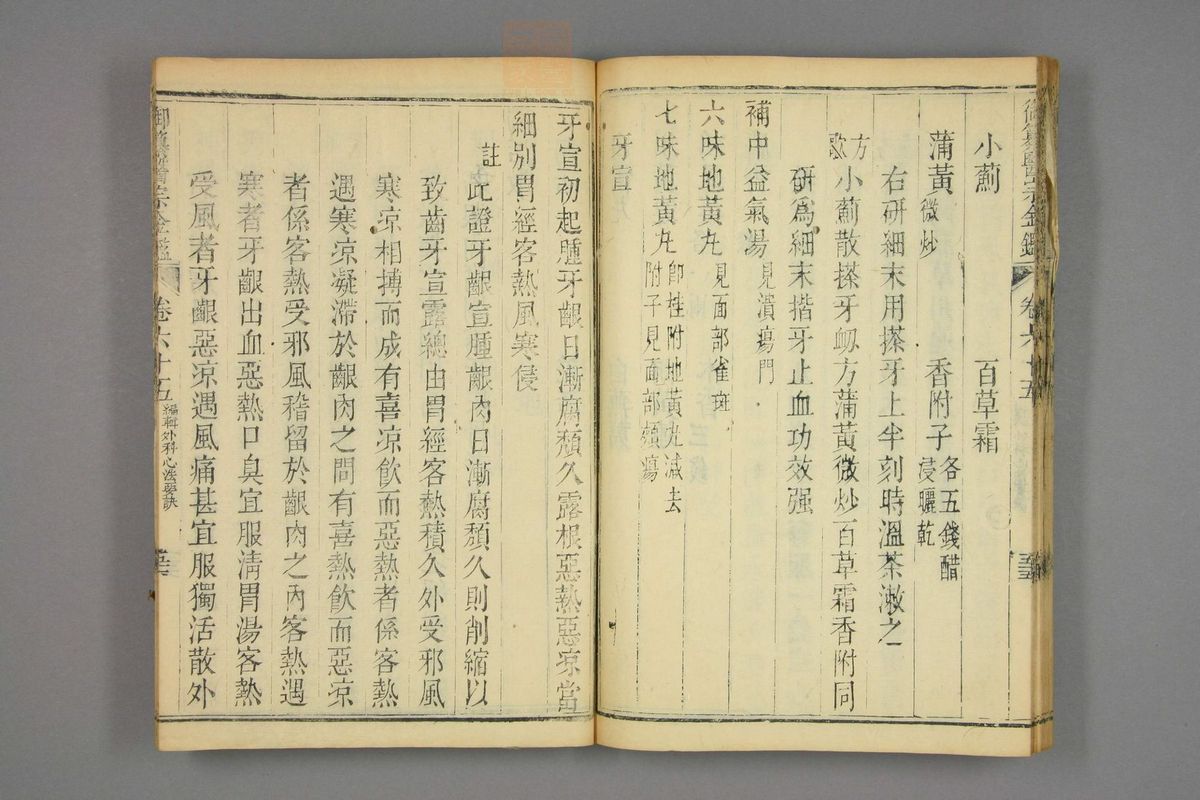 御纂醫宗金鑑 卷六十五
小薊 百草霜
蒲黃微炒 香附子各五錢醋浸曬乾
右研細末用搽牙上半刻時溫茶漱之
方歌 小薊散搽牙衂方蒲黃微炒百草霜香附同
研爲細末揩牙止血功效强
補中益氣湯見潰瘍門
六味地黃丸見面部雀斑
七味地黃丸卽桂附地黃丸減去附子見面部頰瘍
牙宣
牙宣初起腫牙齦日漸腐頹久露根惡熱惡凉當
細別胃經客熱風寒侵
註 此證牙齦宣腫齦肉日漸腐頹久則削縮以
致齒牙宣露總由胃經客熱積久外受邪風
寒凉相搏而成有喜凉飲而惡熱者係客熱
遇寒凉凝滯於齦肉之間有喜熱飲而惡凉
者係客熱受邪風稽留於齦肉之內客熱遇
寒者牙齦出血惡熱口臭宜服淸胃湯客熱
受風者牙齦惡凉遇風痛甚宜服獨活散外
御纂醫宗金鑑 卷六十五 編輯外科心法要訣